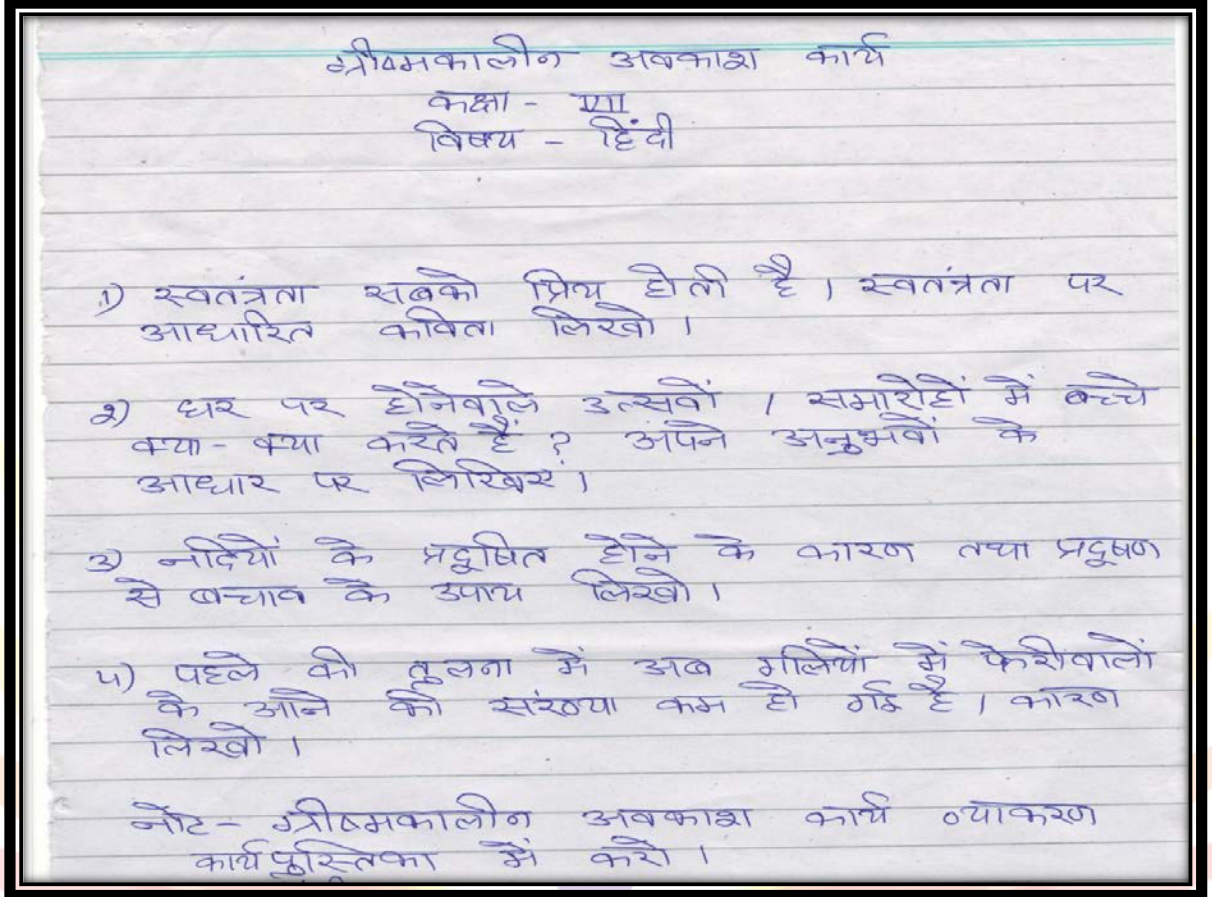 ग्रीष्मकालीन अवकाश कार्य
कक्षा - VII
विषय - हिंदी
1) स्वतंत्रता सबको प्रिय होती है । स्वतंत्रता पर
आधारित कविता लिखो ।
2) घर पर होनेवाले उत्सवों / समारोहों में बच्चे
क्या - क्या करते हैं ? अपने अनुभवों के
आधार पर लिखिए ।
3) नदियों के प्रदूषित होने के कारण तथा प्रदूषण
से बचाव के उपाय लिखो ।
4) पहले की तुलना में अब गलियों में फेरीवालों
के आने की संख्या कम हो गई है । कारण
लिखो ।
नोट - ग्रीष्मकालीन अवकाश कार्य व्याकरण
कार्यपुस्तिका में करो ।